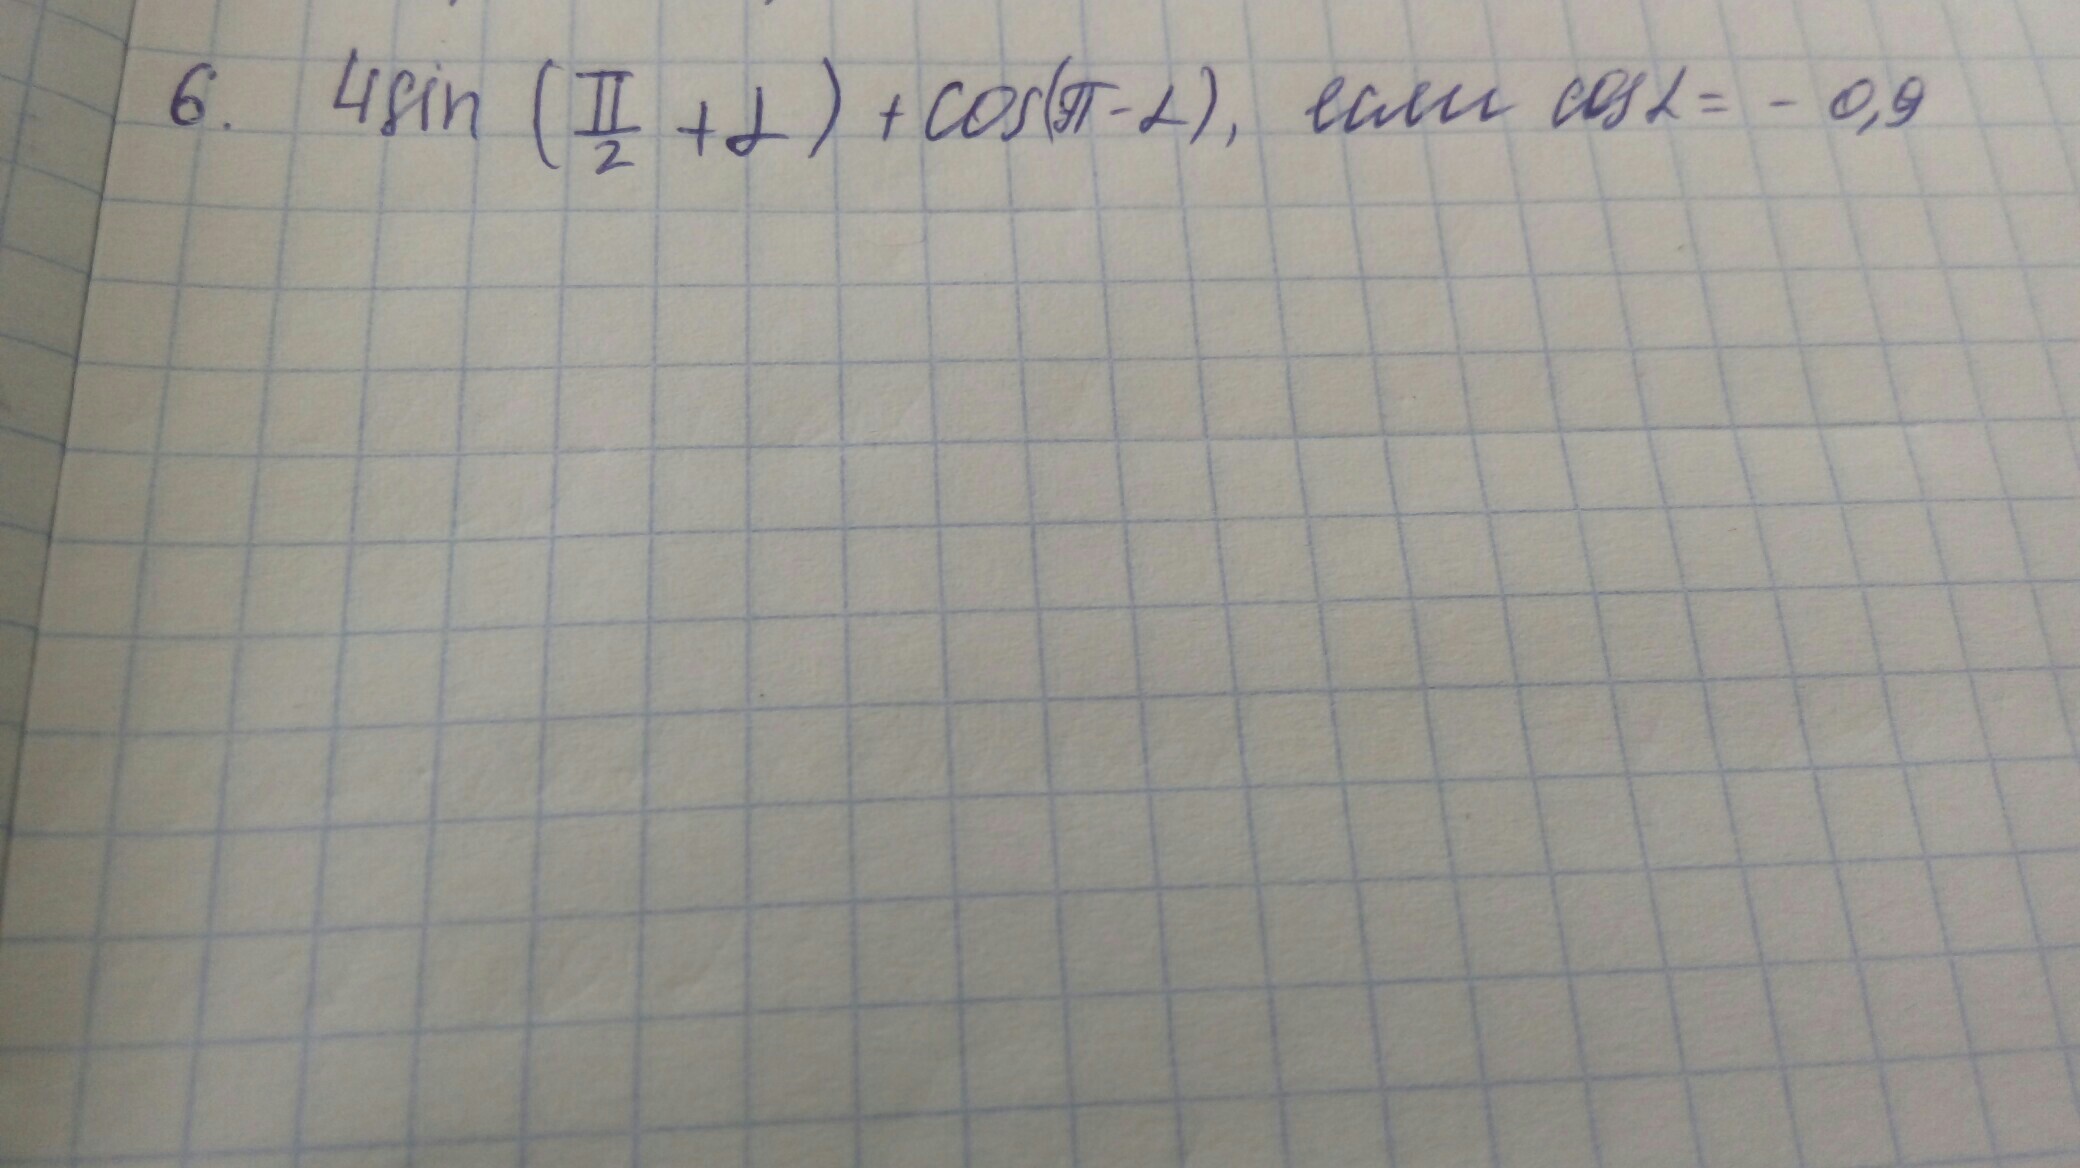 6. 4sin (π/2 + α) + cos(π - α), если cosα = - 0,9